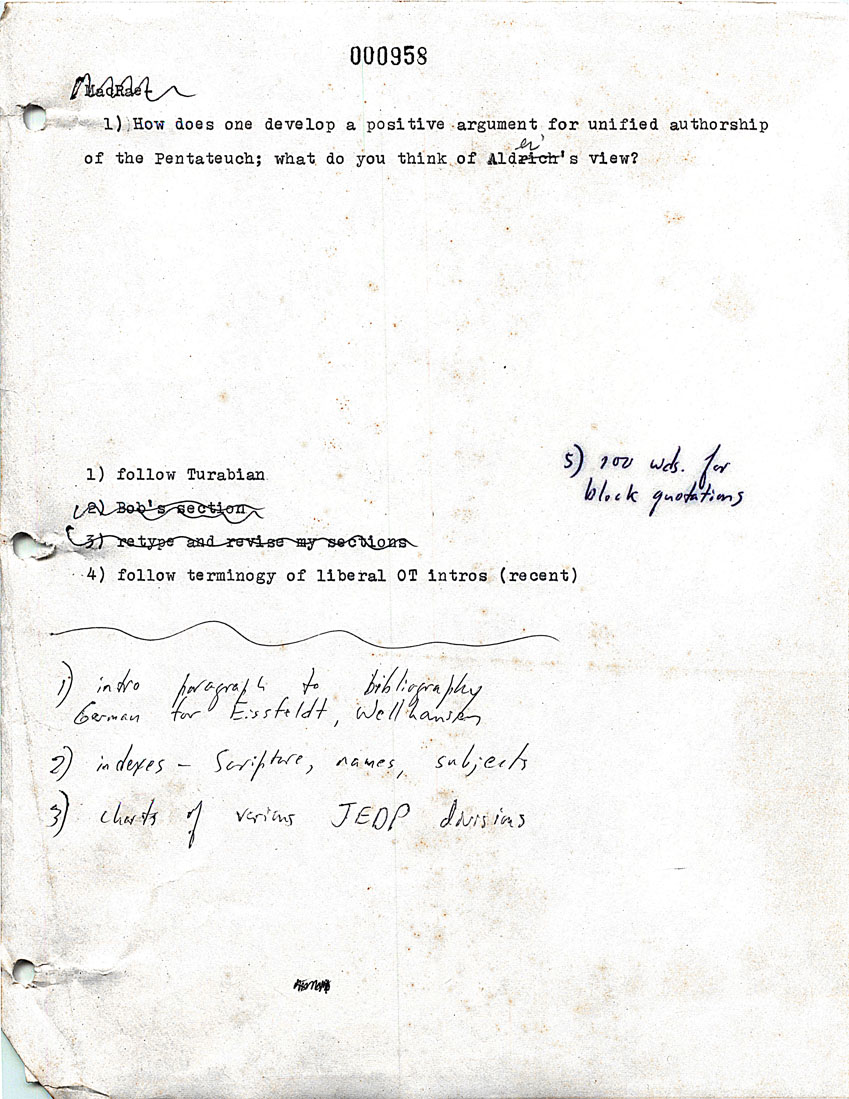 000958
MacRae:
1) How does one develop a positive argument for unified authorship
er
of the Pentateuch; what do you think of Aldrich's view?
1) follow Turabian
5) 100 wds. for
block quotations
2) Bob's section
3) retype and revise my sections
4) follow terminogy of liberal OT intros (recent)
1) intro paragraph to bibliography
German for Eissfeldt, Wellhausen
2) indexes – Scripture, names, subjects
3) charts of various JEDP divisions